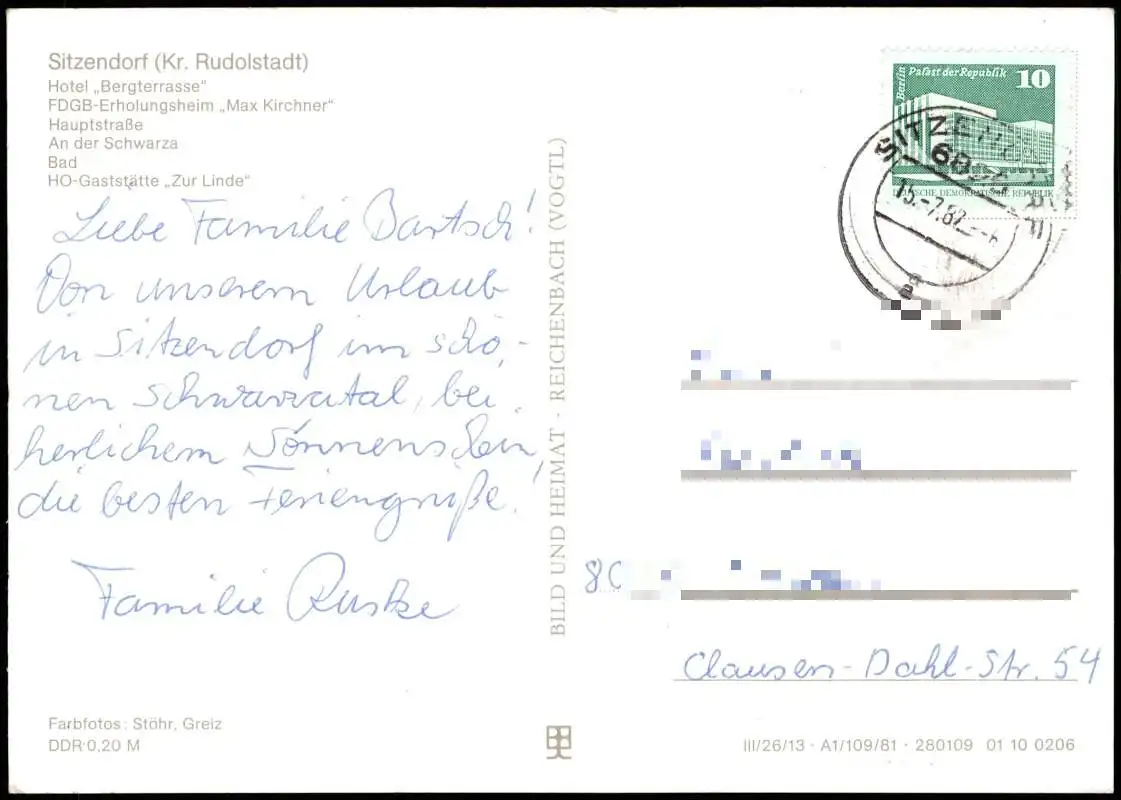 Sitzendorf (Kr. Rudolstadt)
Hotel „Bergterrasse"
FDGB-Erholungsheim „Max Kirchner"
Hauptstraße
An der Schwarza
Bad
HO-Gaststätte „Zur Linde"
Liebe Familie Bartsch!
Von unserem Urlaub
in Sitzendorf im schö-
nen Schwarzatal, bei
herlichem Sonnenschein,
die besten Feriengrüße!
Familie Ruske
Farbfotos: Stöhr, Greiz
DDR 0,20 M
BILD UND HEIMAT · REICHENBACH (VOGTL)
Berlin
Palast der Republik
10
DEUTSCHE DEMOKRATISCHE REPUBLIK
SITZENDORF
15.-7.82
a
80
Clausen-Dahl-Str. 54
III/26/13 · A1/109/81 · 280109 01 10 0206